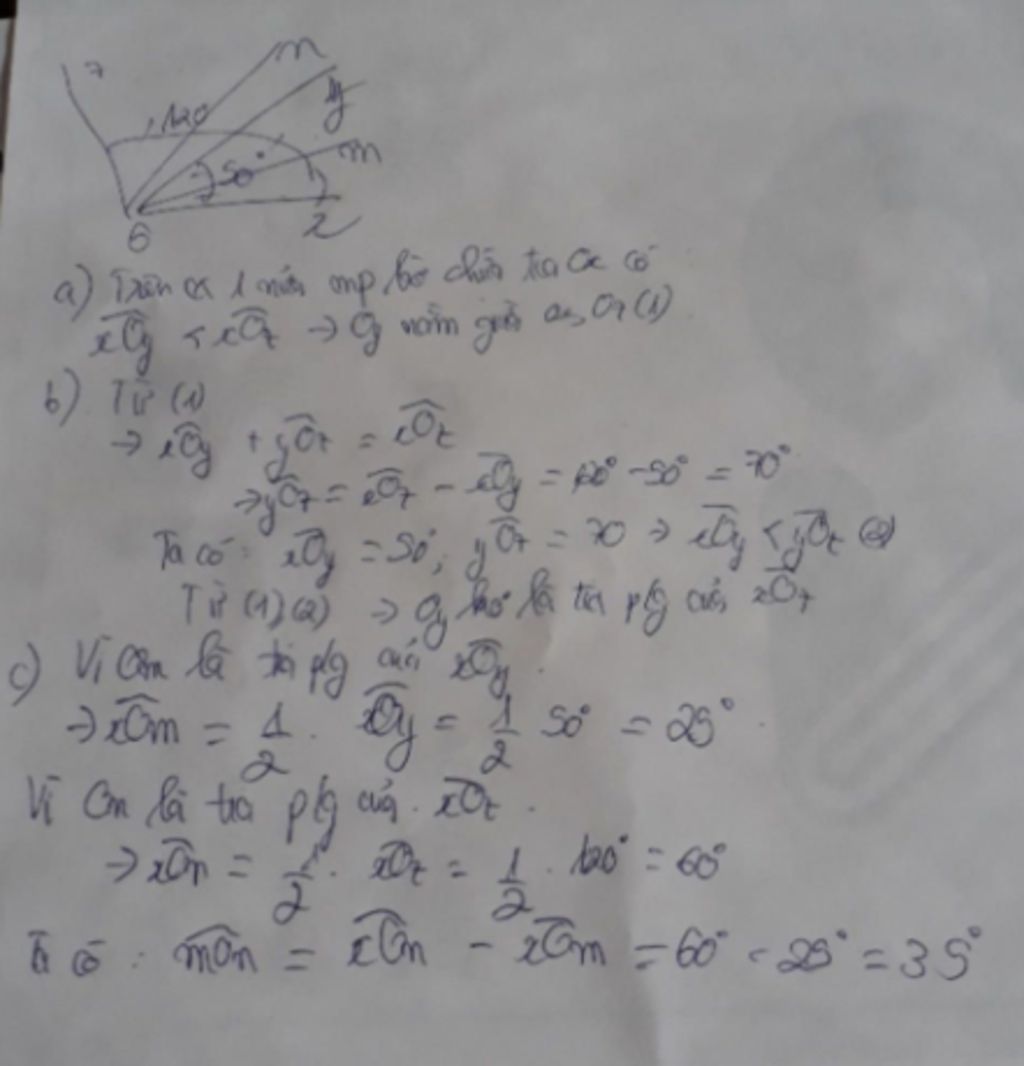 n
y
120°
50°
m
O
x
a) Trên cx 1 nửa mp bờ chứa tia Ox có
xOy < xOt → Oy nằm giữa Ox, Ot (1)
b) Từ (1)
→ xOy + yOt = xOt
→ yOt = xOt - xOy = 120° - 50° = 70°
Ta có: xOy = 50°, yOt = 70 → xOy < yOt (2)
Từ (1), (2) → Oy ko là tia p/g của xOt
c) Vì Om là tia p/g của xOy.
→ xOm = 1/2 . xOy = 1/2 50° = 25°.
Vì On là tia p/g của xOt.
→ xOn = 1/2 . xOt = 1/2 . 120° = 60°
Ta có : mOn = xOn - xOm = 60° - 25° = 35°